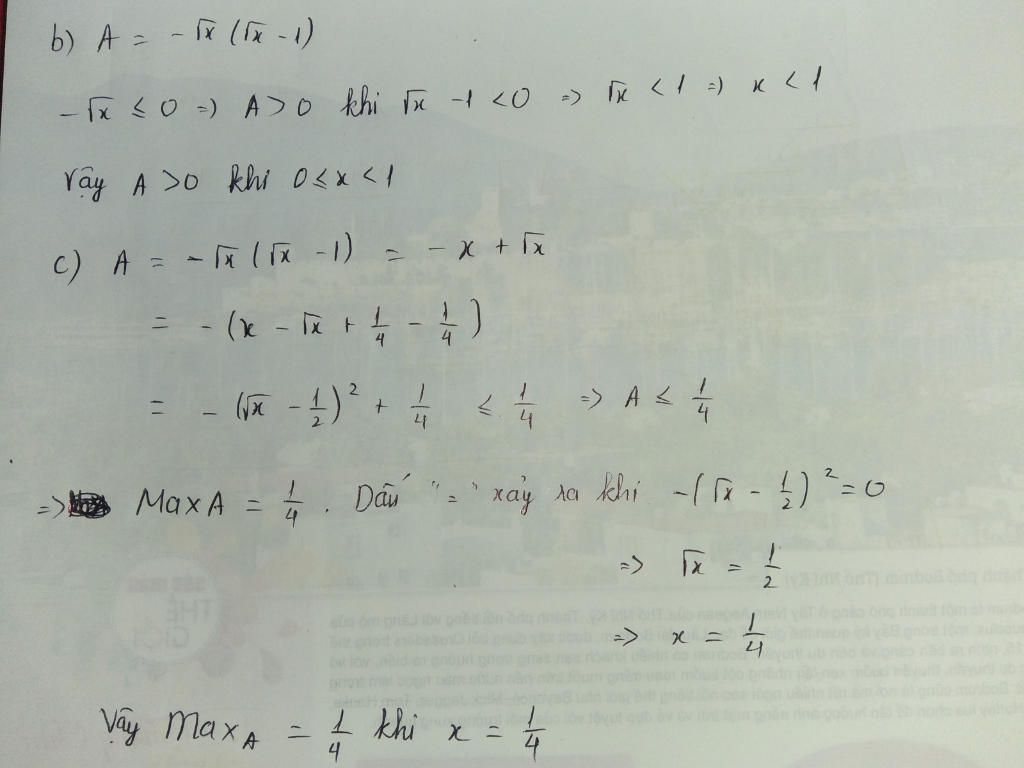 b) A = -√x (√x - 1)
-√x ≤ 0 => A > 0 khi √x - 1 < 0 => √x < 1 => x < 1
Vậy A > 0 khi 0 ≤ x < 1
c) A = -√x (√x - 1) = - x + √x
= - (x - √x + 1/4 - 1/4)
= - (√x - 1/2)² + 1/4 ≤ 1/4 => A ≤ 1/4
=> Max A = 1/4 . Dấu "=" xảy ra khi -(√x - 1/2)² = 0
=> √x = 1/2
=> x = 1/4
Vậy Max A = 1/4 khi x = 1/4